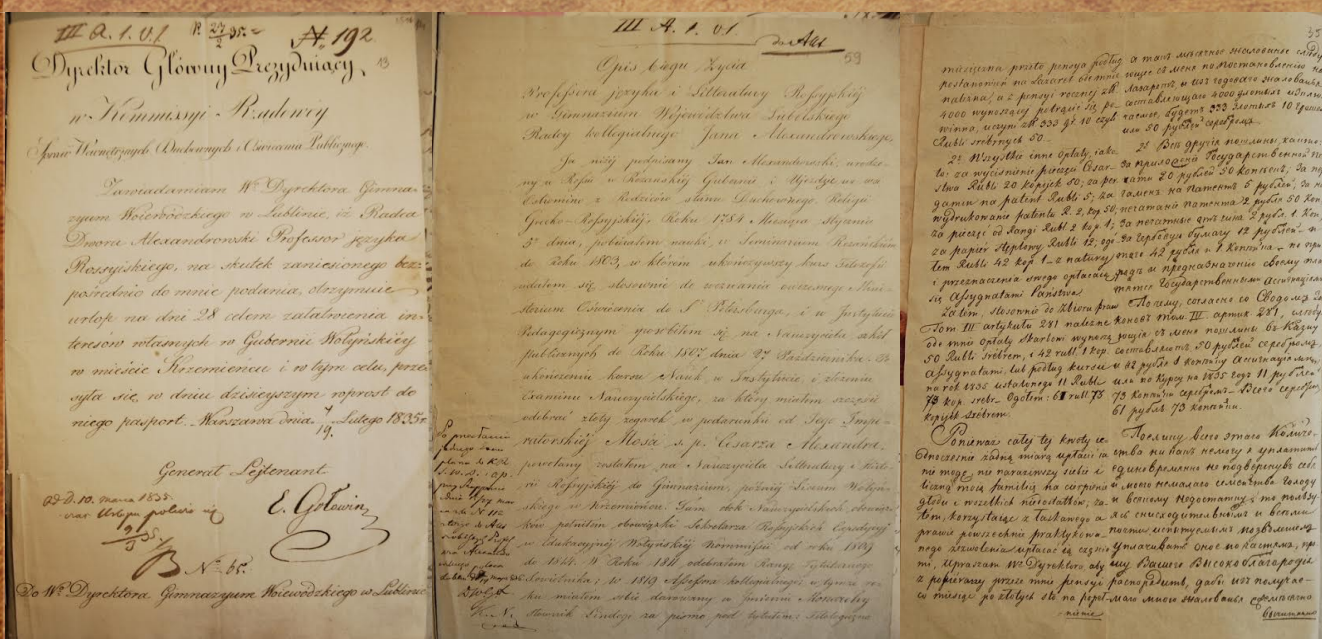 III A. 1. v. 1
№ 192
13
Dyrektor Główny Prezydujący
w Kommissyi Rządowéy
Spraw Wewnętrznych Duchownych i Oświecenia Publicznego.
Zawiadamiam Wº Dyrektora Gimna-
zyum Woiewódzkiego w Lublinie, iż Radca
Dworu Alexandrowski Professor języka
Rossyiskiego, na skutek zaniesionego bez-
pośrednio do mnie podania, otrzymuie
urlop na dni 28 celem załatwienia in-
teresów własnych w Gubernii Wołyńskiéy
w mieście Krzemieńcu i w tym celu, prze-
syła się, w dniu dzisieyszym wprost do
niego pasport. Warszawa dnia 7/19 Lutego 1835 r.
Generał Lejtenant
E. Gołowin
ad D. 10. marca 1835.
B № 65.
Do Wº Dyrektora Gimnazyum Woiewódzkiego w Lublinie
III A. 1. v. 1.
59
Opis Ciągu Życia
Professora języka i Litteratury Rossyjskiéj
w Gimnazium Województwa Lubelskiego
Radcy kollegialnego Jana Alexandrowskiego,
Ja niżéj podpisany Jan Alexandrowski, urodzo-
ny w Rossii w Rezańskiéj Gubernii i Ujezdzie we wsi
z Rodziców stanu Duchownego, Religii
Greko-Rossyjskiéj, Roku 1784 Miesiąca Stycznia
5º dnia, pobierałem nauki, w Seminarium Rezańskiem
do Roku 1803, w którém ukończywszy kurs Filozofii
udałem się, stosownie do wezwania ówczesnego Mini-
sterium Oświecenia do Sº Petersburga, i w Instytucie
Pedagogicznym sposobiłem się na Nauczyciela szkół
publicznych do Roku 1807 dnia 27 Października. Po
ukończeniu kursu Nauk, w Instytucie, i złożeniu
Examinu Nauczycielskiego, za który miałem szczęście
odebrać złoty zegarek w podarunku od Jego Impe-
ratorskiéj Mości s. p. Cesarza Alexandra,
powołany zostałem na Nauczyciela Litteratury i Histo-
rii Rossyjskiéj do Gimnazium, późniéj Liceum Wołyń-
skiego w Krzemieńcu: Tam obok Nauczycielskich obowiąz-
ków pełniłem obowiązki Sekretarza Rossyjskiéj Expedycyi
w Edukacyjnéj Wołyńskiéj Kommissii od roku 1809
do 1814. W Roku 1811 odebrałem Rangę Tytularnego
Sowietnika; w 1819 Assessora kollegialnego, w tymże ro-
ku miałem sobie darowany w Imieniu Monarchy
za pismo pod tytułem:
35
miesięczna, przeto pensya podług
postanowień na Lazaret odemnie
należna, a z pensyi roczney zł.
4000 wynoszącey potrącić się po-
winna, uczyni zł 333 gr. 10 czyli
Rubli srebrnych 50.
2º Wszystkie inne opłaty, jako
to: za wyciśnienie pieczęci Cesar-
stwa Rubl. 20 kopijek 50; za per-
gamin na patent Rubli 5; za
wydrukowanie patentu R. 2, kop. 50;
za pieczęć od Rangi Rubl. 2 kop. 1;
za papier stęplowy Rubli 12; ogó-
łem Rubli 42 kop 1 - z natury
i przeznaczenia swego opłacają
się Assygnatami Państwa.
Zatem, stosownie do Zbioru praw
Tom III artykułu 281 należne
ode mnie opłaty Skarbowi wynoszą
50 Rubli Srebrem, i 42 rubl. 1 kop.
Assygnatami, lub podług kursu
na rok 1835 ustalonego 11 Rubli
73 kop. srebr. Ogółem: 61 rubl 73
kopijek srebrem.
Ponieważ całéj téj kwoty je-
dnocześnie żadną miarą wpłacić
nie mogę, nie naraziwszy siebie i
liczną moją familię na cierpienie
głodu i wszelkich niedostatków; za-
tem, korzystając z łaskawego a
prawie powszechnie praktykowa-
nego zezwolenia wpłacać się części-
mi, Upraszam Wº Dyrektora aby
z pobieranéj przeze mnie pensyi
co miesiąc po złotych sto na popół-
а такъ мѣсячное жалованье слѣду-
ющее съ меня по постановленію на
Лазаретъ, изъ годоваго жалованья
составляющаго 4000 злотыхъ
будетъ 333 злотыхъ 10 грошей
или 50 рублей серебромъ.
2º Всѣ другія пошлины, какъ то:
за приложеніе Государственной пе-
чати 20 рублей 50 копѣекъ; за пер-
гаменъ на Патентъ 5 рублей; за на-
печатаніе патента 2 рубля 50 коп.
за Гербовую бумагу 12 рублей и
того 42 рубля и 1 копѣйка - по при-
родѣ и предназначенію своему пла-
тятся Государственными Ассигнаціями.
Почему, согласно со Сводомъ За-
коновъ Том. III. артик 281, слѣду-
ющія съ меня пошлины въ Казну
составляютъ 50 рублей серебромъ,
и 42 рубля 1 копѣйку Ассигнаціями
или по Курсу на 1835 годъ 11 рублей
73 копѣйки серебромъ. Всего серебромъ
61 рубль 73 копѣйки.
Поелику всего этаго Количе-
ства никакъ немогу я уплатить
единовременно не подвергнувъ себя
и моего немалаго семейства голоду
и всякому недостатку; то пользу-
ясь снисходительнымъ и всеми
почти испытуемымъ позволеніемъ
уплачивать оное по частямъ, про-
шу Вашего Высокоблагородія
распорядить, дабы изъ получае-
маго мною жалованья ежемѣсячно